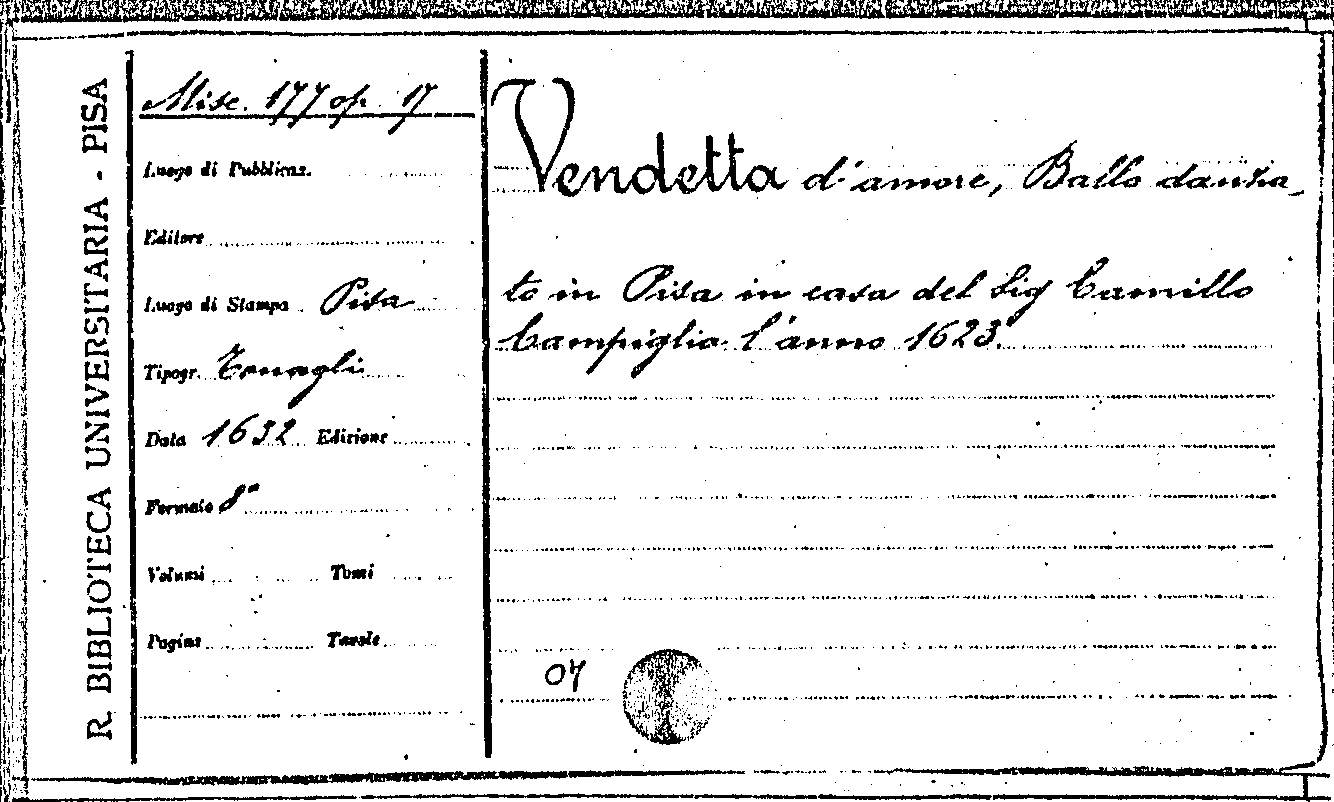 R. BIBLIOTECA UNIVERSITARIA - PISA
Misc. 177 op. 17
Luogo di Pubblicaz.
Editore
Luogo di Stampa Pisa
Tipogr. Tanagli
Data 1632 Edizione
Formato 8°
Volumi Tomi
Pagine Tavole
Vendetta d'amore, Ballo danza_
to in Pisa in casa del Sig Camillo
Campiglia l'anno 1623.
07